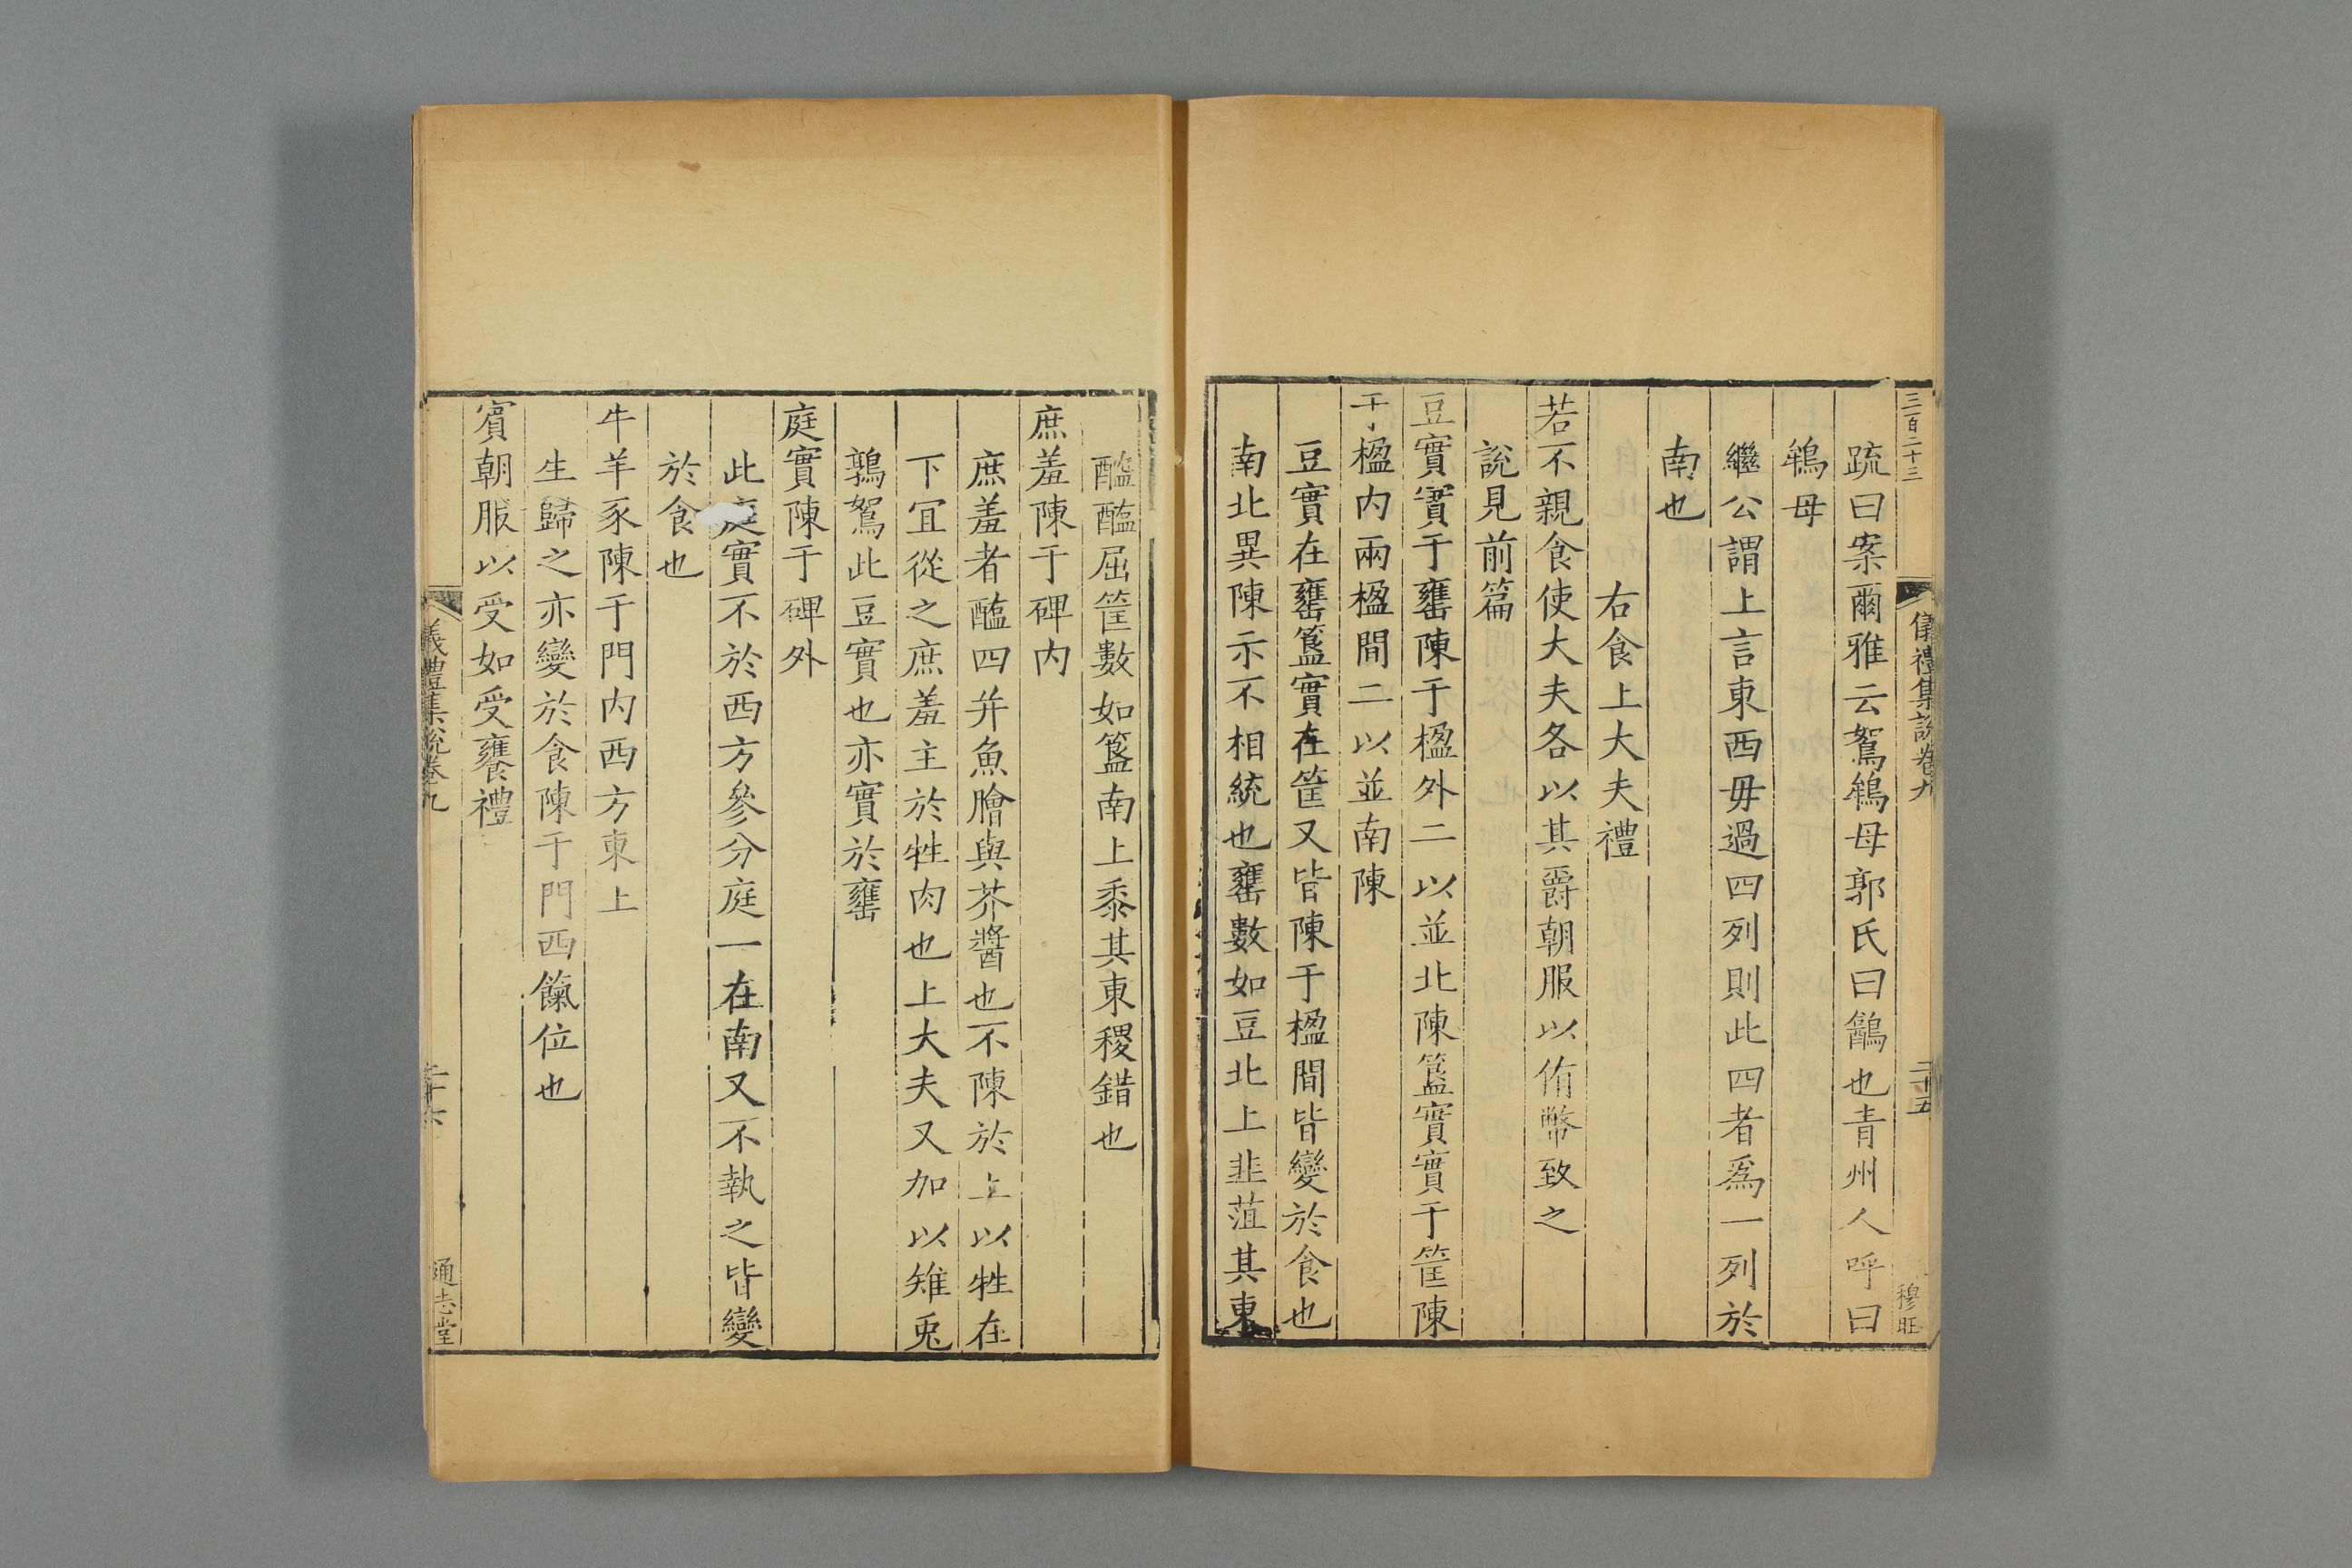 三百二十三
儀禮集說卷九
二十五
穆旺
疏曰案爾雅云鴽鴾母郭氏曰鶕也青州人呼曰
鴾母
繼公謂上言東西毋過四列則此四者爲一列於
南也
右食上大夫禮
若不親食使大夫各以其爵朝服以侑幣致之
說見前篇
豆實實于罋陳于楹外二以並北陳簋實實于筐陳
于楹内兩楹間二以並南陳
豆實在罋簋實在筐又皆陳于楹間皆變於食也
南北異陳示不相統也罋數如豆北上韭菹其東
醓醢屈筐數如簋南上黍其東稷錯也
庶羞陳于碑内
庶羞者醢四并魚膾與芥醬也不陳於上以牲在
下宜從之庶羞主於牲肉也上大夫又加以雉兎
鶉鴽此豆實也亦實於罋
庭實陳于碑外
此庭實不於西方參分庭一在南又不執之皆變
於食也
牛羊豕陳于門内西方東上
生歸之亦變於食陳于門西餼位也
賓朝服以受如受饔禮
儀禮集說卷九
二十六
通志堂